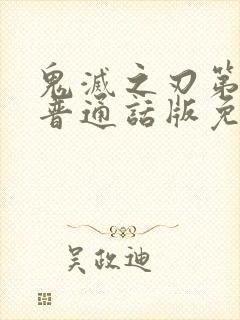 鬼滅之刃第
普通話版免
吴政迪